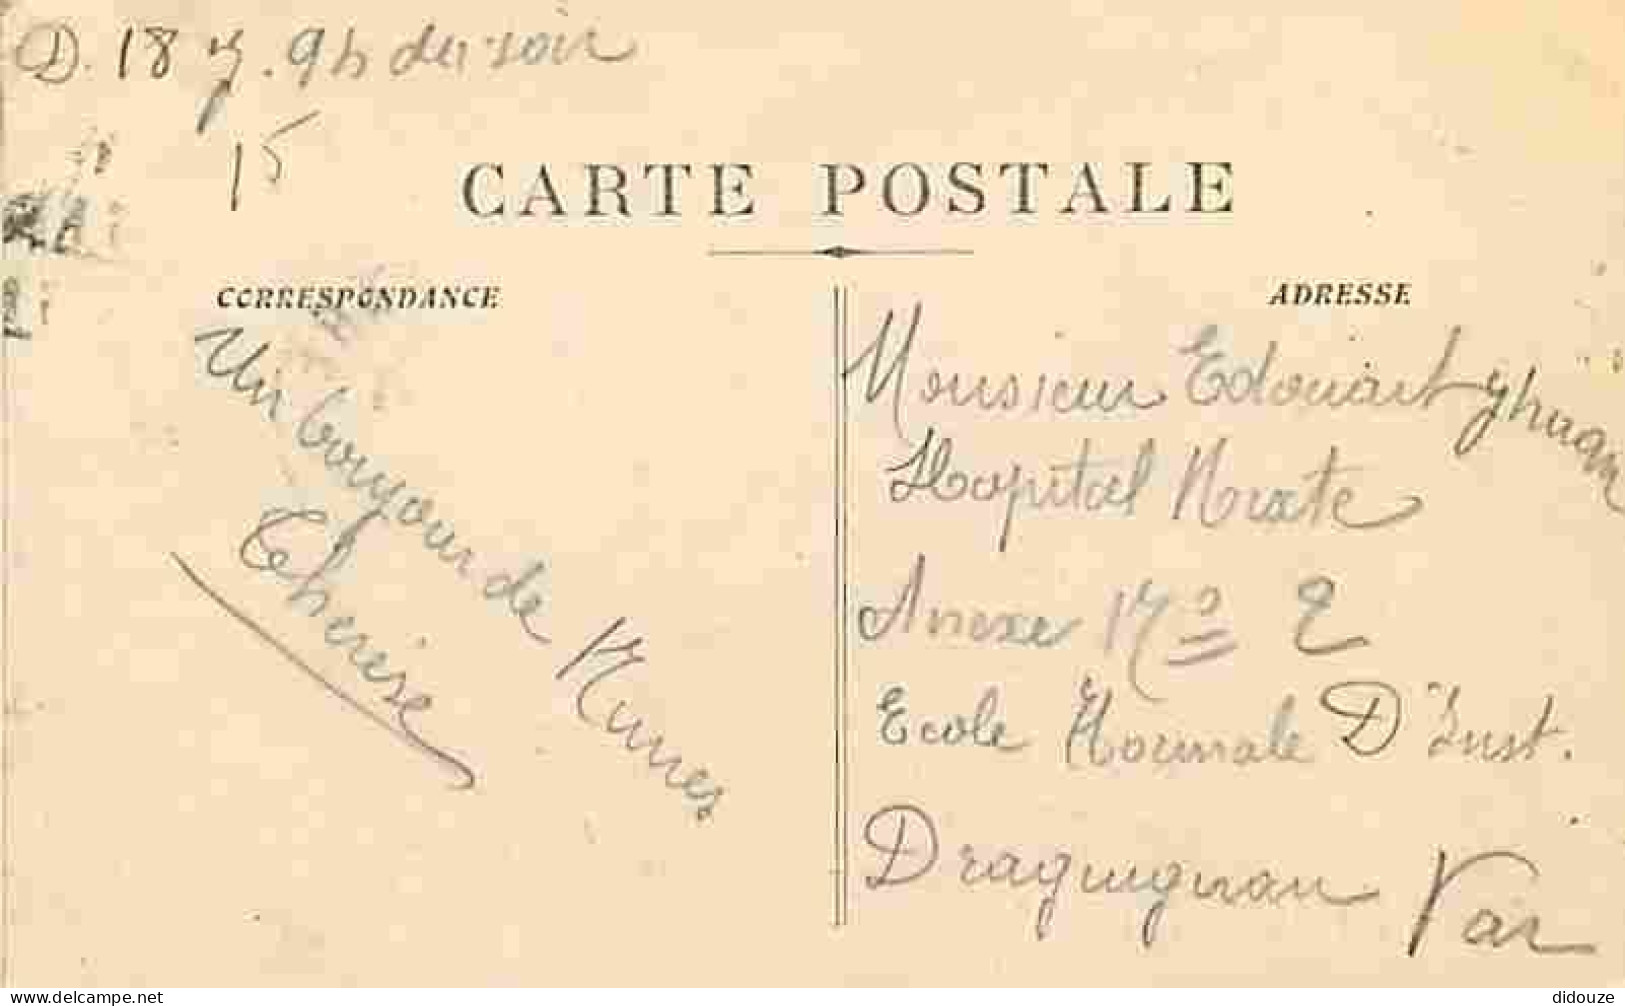 D. 18 7. 9h du soir
15
CARTE POSTALE
CORRESPONDANCE
ADRESSE
Un bonjour de Nimes
Therese
Monsieur Edouard
Hopital Mixte
Anexe Nº 2
Ecole Normale D'Inst.
Draguignan Var
delcampe.net
didouze